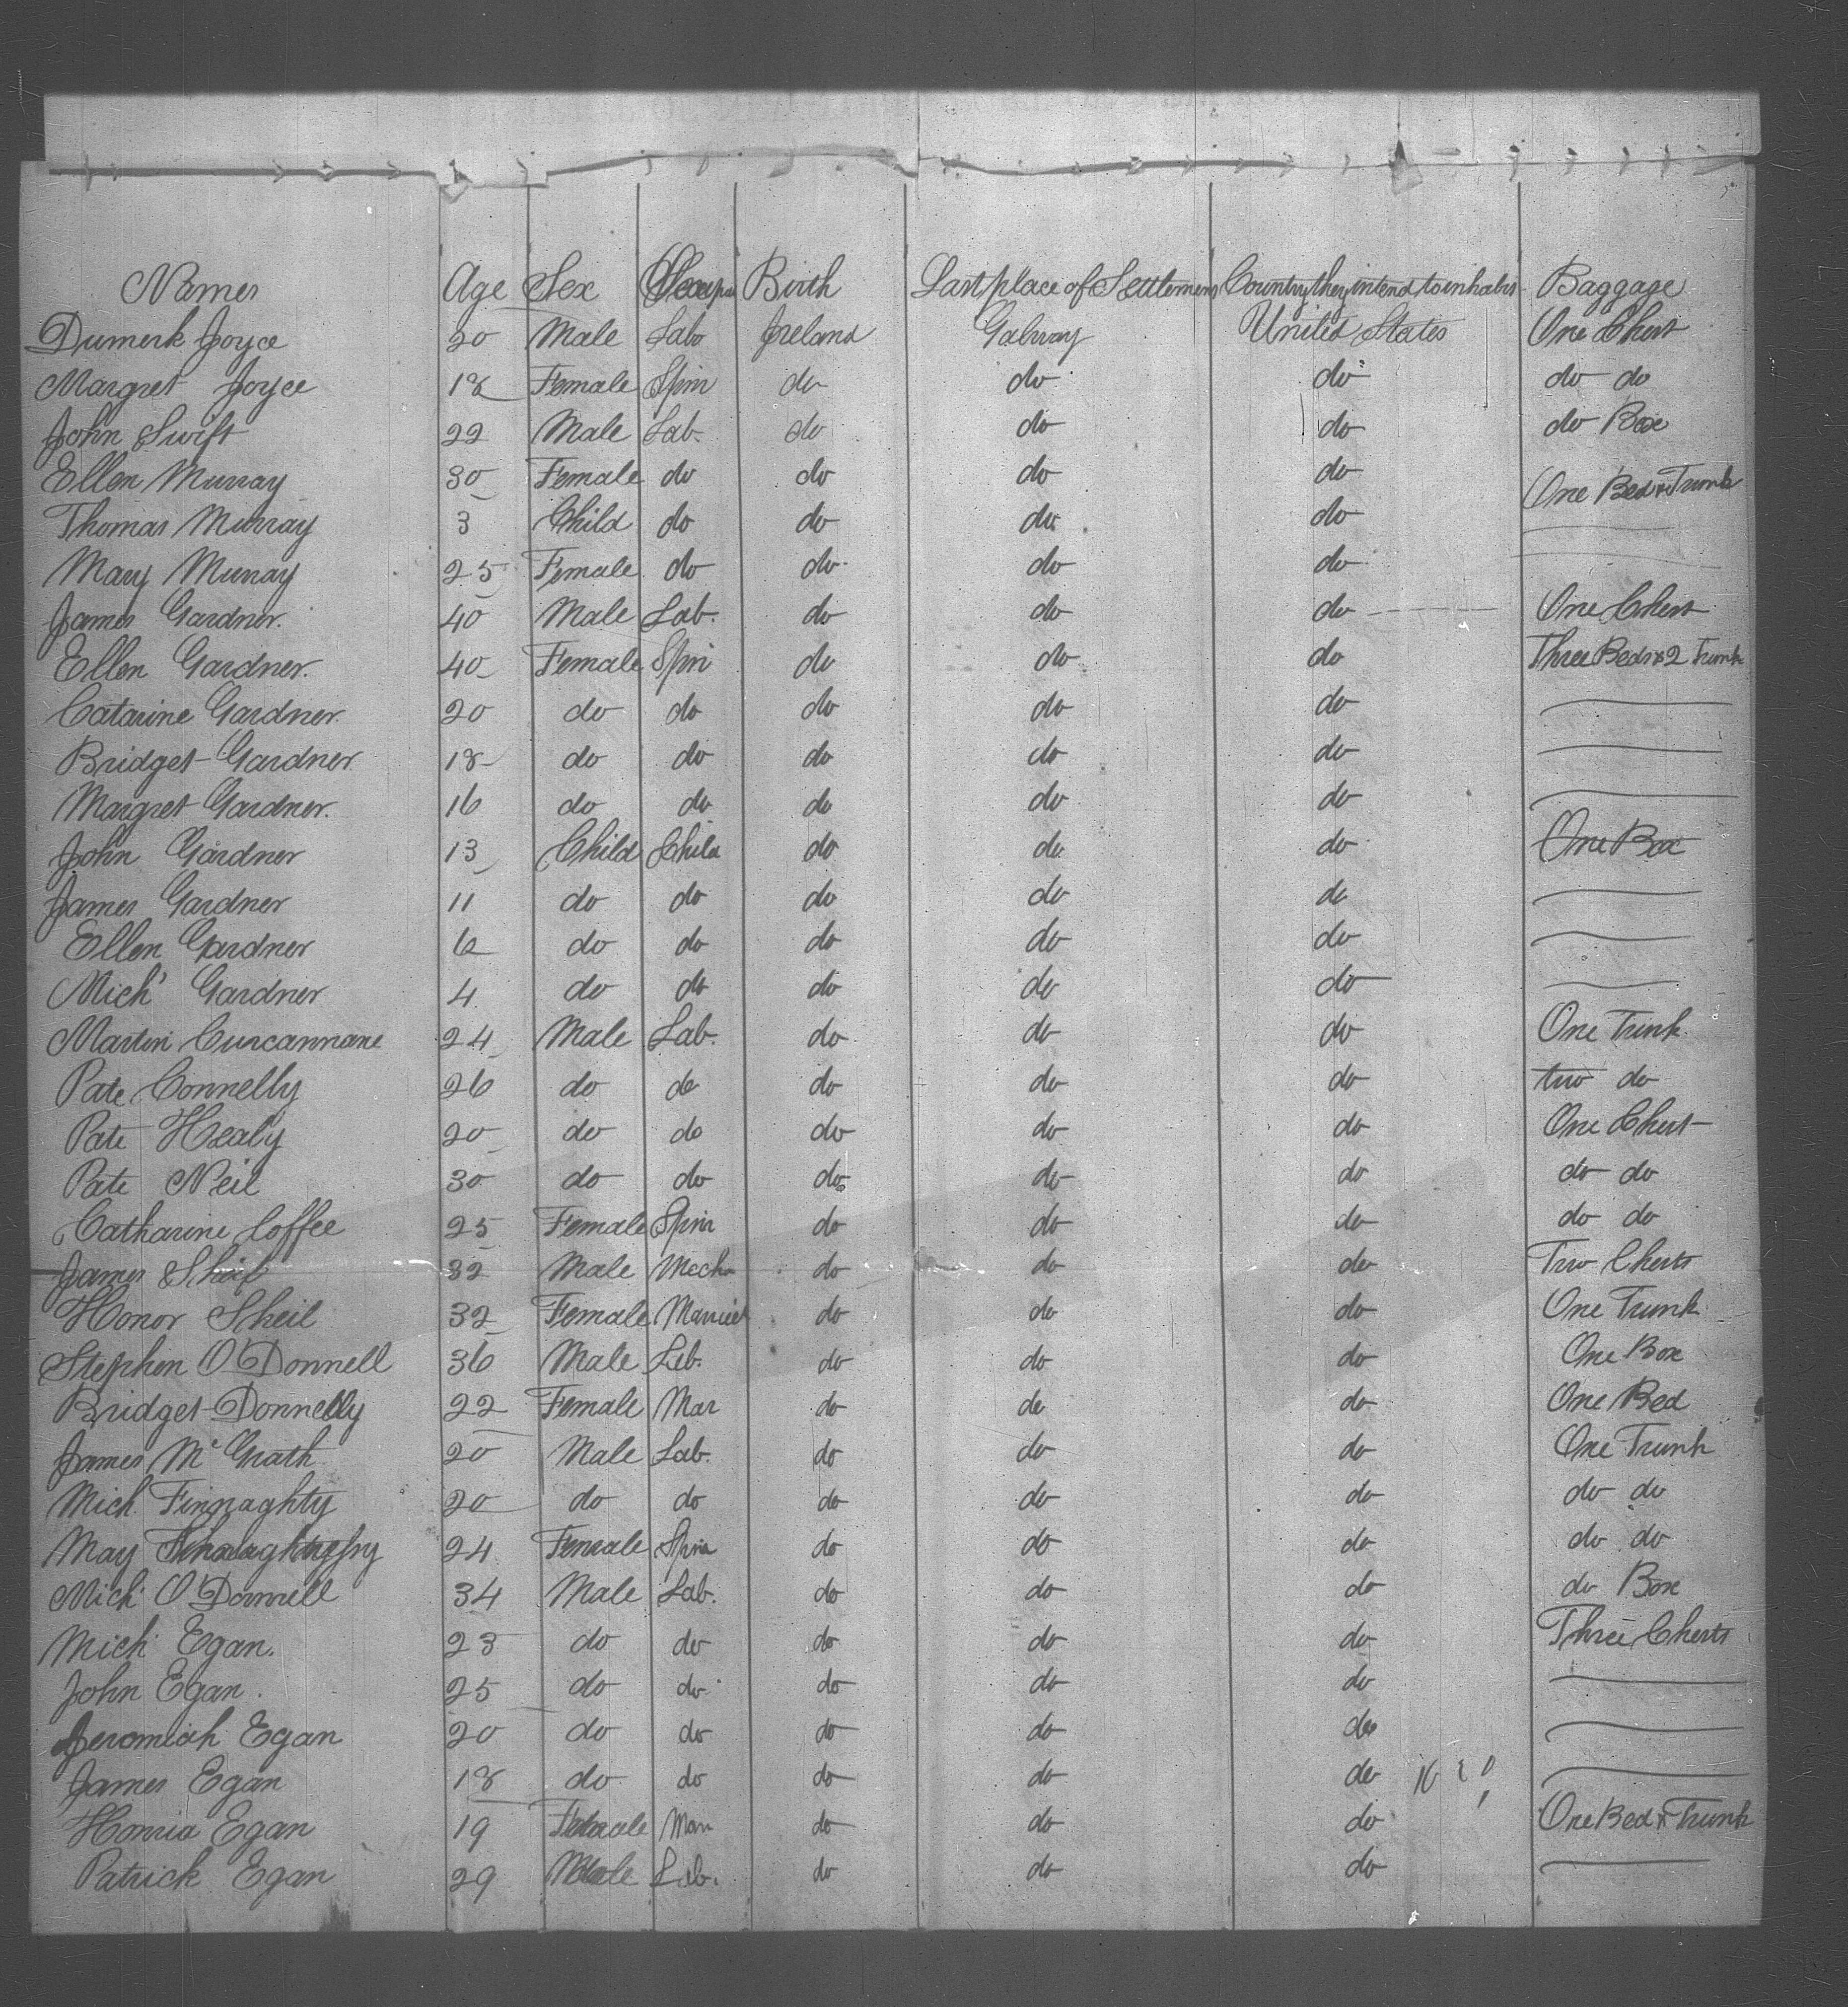 Names Age Sex Occupa Birth Last place of Settlement Country they intend to inhabit Baggage
Dumerk Joyce 20 Male Labo Ireland Galway United States One Chest
Margret Joyce 18 Female Spin do do do do do
John Swift 22 Male Lab. do do do do Box
Ellen Murray 30 Female do do do do One Bed & Trunk
Thomas Murray 3 Child do do do do
Mary Murray 25 Female do do do do
James Gardner. 40 Male Lab. do do do One Chest
Ellen Gardner. 40 Female Spin do do do Three Beds & 2 Trunk
Catarine Gardner 20 do do do do do
Bridget Gardner 18 do do do do do
Margret Gardner. 16 do do do do do
John Gardner 13 Child Child do do do One Box
James Gardner 11 do do do do do
Ellen Gardner 6 do do do do do
Mich' Gardner 4 do do do do do
Martin Curcannane 24 Male Lab. do do do One Trunk.
Pate Connelly 26 do do do do do two do
Pate Healy 20 do do do do do One Chest
Pate Neil 30 do do do do do do do
Catharine Coffee 25 Female Spin do do do do do
James Sheil 32 Male Mech do do do Two Chests
Honor Sheil 32 Female Married do do do One Trunk
Stephen O'Donnell 36 Male Lab. do do do One Box
Bridget Donnelly 22 Female Mar do do do One Bed
James Mc Grath 20 Male Lab. do do do One Trunk
Mich Finnaghty 20 do do do do do do do
May 24 Female Spin do do do do do
Mich O'Donnell 34 Male Lab. do do do do Box
Mich Egan. 23 do do do do do Three Chests
John Egan. 25 do do do do do
Jeromiah Egan 20 do do do do do
James Egan 18 do do do do do
Honria Egan 19 Female Mar do do do One Bed & Trunk
Patrick Egan 29 Male Lab. do do do